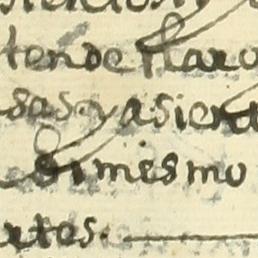 tende llaro
sas. y asient
si mesmo
rtes.